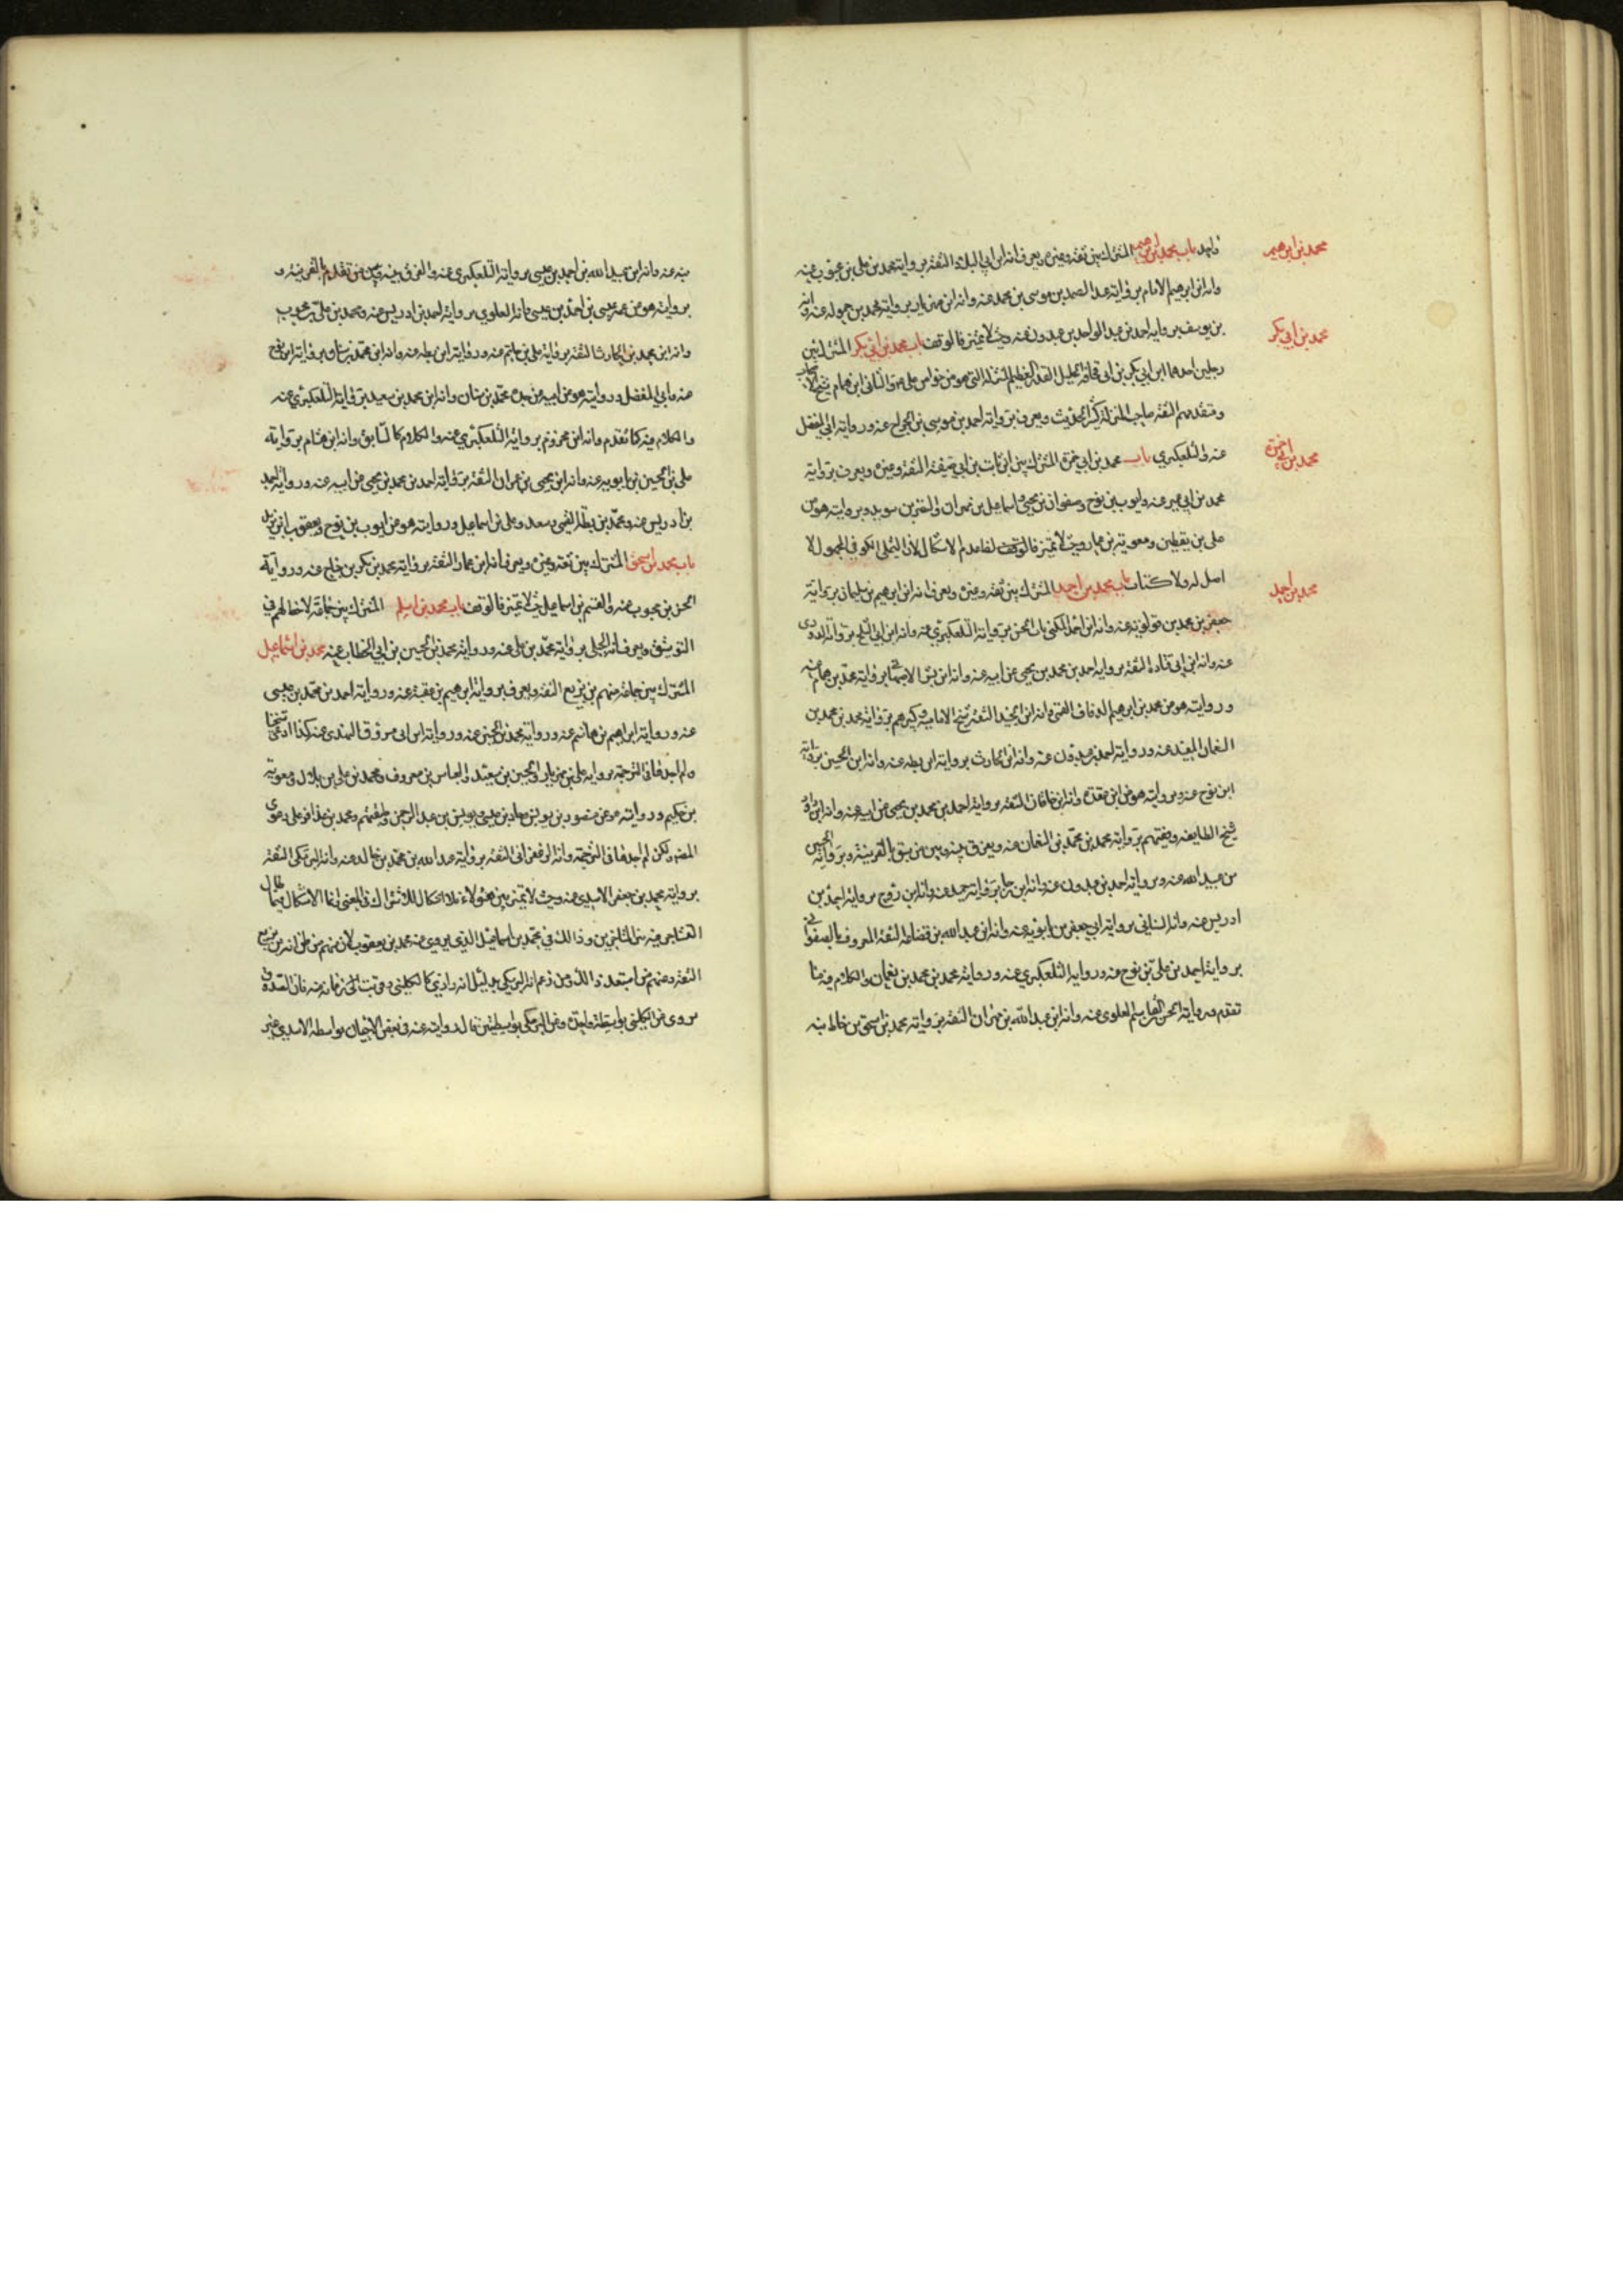 محمد بن ابرهيم
واحد باب محمد بن ابرهيم المشترك بين ثقة وغيره ويعرف انه ابن ابي البلاد الثقة برواية محمد بن علي بن محبوب عنه
وانه ابن ابرهيم الامام برواية عبد الصمد بن موسى بن محمد عنه وانه ابن مهزيار برواية محمد بن حمويه عنه وانه
محمد بن ابي بكر
بن يوسف برواية احمد بن عبد الواحد بن عبدون عنه وحيث لا تميز فالوقف باب محمد بن ابي بكر المشترك بين
رجلين احدهما ابن ابي بكر بن ابي قحافة الجليل القدر العظيم المنزلة التي هو من خواص علي ع والثاني ابن همام شيخ الاصحاب
ومتقدمهم الثقة صاحب المنزلة كثير الحديث ويعرف برواية احمد بن موسى بن الجراح عنه ورواية ابي المفضل
محمد بن ابي حمزة
عنه والتلعكبري باب محمد بن ابي حمزة المشترك بين ابن ثابت بن ابي صفية الثقة وغيره ويعرف برواية
محمد بن ابي عمير عنه وايوب بن نوح وصفوان بن يحيى واسماعيل بن مهران والنضر بن سويد وبروايته هو عن
علي بن يقطين ومعوية بن عمار وحيث لا تميز فالوقف لكن ما عدم الاشكال لان التيملي الكوفي المجهول لا
محمد بن احمد
اصل له ولا كتاب باب محمد بن احمد المشترك بين ثقة وغيره ويعرف انه ابن ابرهيم بن سليمان برواية
جعفر بن محمد بن قولويه عنه وانه ابن احمد المكنى بابي الحسن برواية التلعكبري عنه وانه ابن ابي الثلج برواية الدوري
عنه وانه ابن ابي قتادة الثقة برواية احمد بن محمد بن يحيى عن ابيه عنه وانه ابن بشر برواية محمد بن همام عنه
وروايته هو عن محمد بن ابرهيم الدقاق القمي وانه ابن الجنيد الثقة شيخ الامامية وكبيرهم برواية محمد بن محمد بن
النعمان المفيد عنه ورواية احمد بن عبدون عنه وانه ابن الحارث برواية ابن بطة عنه وانه ابن الحسين برواية
ابن نوح عنه وبروايته هو عن ابن عقدة وانه ابن خاقان الثقة برواية احمد بن محمد بن يحيى عن ابيه عنه وانه ابن داود
شيخ الطايفة وفقيههم برواية محمد بن محمد بن النعمان عنه ويفرق بينه وبين من سبق بالقرينة وبرواية الحسين
بن عبيد الله عنه وبرواية احمد بن عبدون عنه وانه ابن رجا برواية حميد عنه وانه ابن روح برواية احمد بن
ادريس عنه وانه السناني برواية ابي جعفر بن بابويه عنه وانه ابن عبد الله بن قضاعة الثقة المعروف بالصفواني
برواية احمد بن علي بن نوح عنه ورواية التلعكبري عنه ورواية محمد بن محمد بن نعمان والكلام فيه مما
تقدم ورواية الحسن القاسم العلوي عنه وانه ابن عبد الله بن مهران الثقة برواية محمد بن اسحق بن خالد
عنه وانه ابن عبيد الله بن احمد بن عيسى برواية التلعكبري عنه والفرق بينه وبين من تقدم بالقرينة و
بروايته هو عن عمه عيسى بن احمد بن عيسى وانه العلوي برواية احمد بن ادريس عنه ومحمد بن علي بن محبوب
وانه ابن محمد بن الحارث الثقة برواية علي بن حاتم عنه ورواية ابن بطة عنه وانه ابن محمد بن سنان برواية ابن نوح
عنه وابي المفضل وروايته هو عن ابيه عن جده محمد بن سنان وانه ابن محمد بن سعيد برواية التلعكبري عنه
والكلام فيه كما تقدم وانه ابن مخزوم برواية التلعكبري عنه والكلام كالسابق وانه ابن هشام برواية
علي بن الحسين بن بابويه عنه وانه ابن يحيى بن عمران الثقة برواية احمد بن محمد بن يحيى عن ابيه عنه ورواية احمد
بن ادريس عنه ومحمد بن بطة القمي وسعد وعلي بن اسماعيل وروايته هو عن ايوب بن نوح ويعقوب بن يزيد
باب محمد بن اسحق المشترك بين ثقة وغيره ويعرف انه ابن عمار الثقة برواية محمد بن بكر بن جناح عنه ورواية
الحسن بن محبوب عنه والقسم بن اسماعيل وحيث لا تميز فالوقف باب محمد بن اسلم المشترك بين جماعة لا حظ لهم في
التوثيق ويعرف انه الجبلي برواية محمد بن علي عنه ورواية محمد بن الحسين بن ابي الخطاب عنه محمد بن اسماعيل
المشترك بين جماعة منهم بن بزيع الثقة ويعرف برواية ابرهيم بن عقبة عنه ورواية احمد بن محمد بن عيسى
عنه ورواية ابراهيم بن هاشم عنه ورواية محمد بن الحسين عنه ورواية ابن ابي مسروق النهدي عنه كذا ادعى شيخنا
ولم اجدها في الترجمة برواية علي بن مهزيار والحسين بن سعيد والعباس بن معروف ومحمد بن علي بن بلال ومعوية
بن حكيم وروايته هو عن منصور بن يونس وحماد بن عيسى ويونس بن عبد الرحمن وطبقتهم ومحمد بن عذافر على دعوى
المصنف ولكن لم اجدها في الترجمة وانه الزعفراني الثقة برواية عبد الله بن محمد بن خالد عنه وانه البرمكي الثقة
برواية محمد بن جعفر الاسدي عنه وحيث لا تميز بين هؤلاء فلا اشكال للاشتراك في المعنى وانما الاشكال فيما طال
التشاجر فيه بين المتاخرين وذالك في محمد بن اسماعيل الذي يروي عنه محمد بن يعقوب لان منهم من ظن انه بن بزيع
الثقة ومنهم من استبعد ذالك ومن زعم انه البرمكي بدليل انه رازي كالكليني وقريب الى زمانه منه فان الصدوق
يروي عن الكليني بواسطة واحدة وعن البرمكي بواسطتين كما له رواية عنه في بعض الاحيان بواسطة الاسدي غير